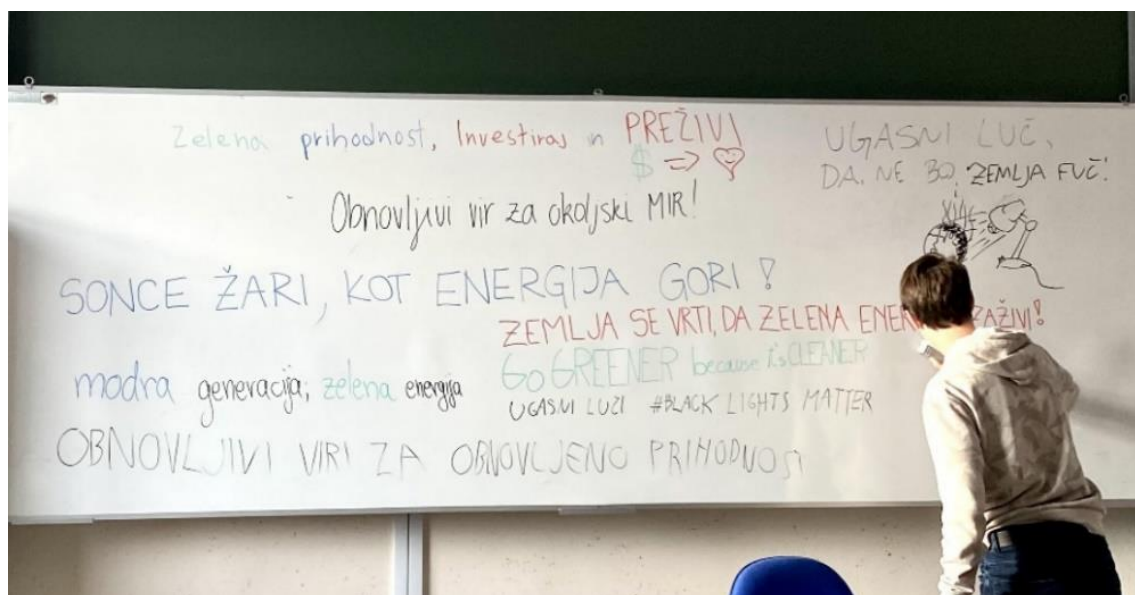 Zelena prihodnost, Investiraj in PREŽIVI
$ ⇒ ♡
UGASNI LUČ,
DA NE BO ZEMLJA FUČ!
Obnovljivi vir za okoljski MIR!
SONCE ŽARI, KOT ENERGIJA GORI!
ZEMLJA SE VRTI, DA ZELENA ZAŽIVI!
modra generacija, zelena energija
GO GREENER because it's CLEANER
UGASNI LUČI #BLACK LIGHTS MATTER
OBNOVLJIVI VIRI ZA OBNOVLJENO PRIHODNOST